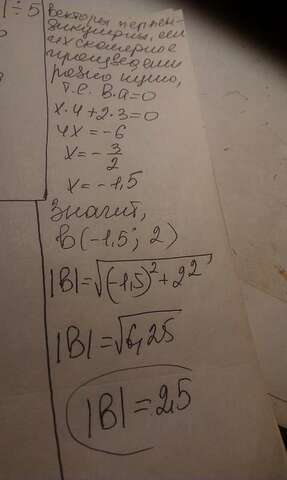 1 ÷ 5
векторы перпен-
дикулярны, если
их скалярное
произведение
равно нулю,
т.е. в·а=0
x·4+2·3=0
4x=-6
x=-3/2
x=-1,5
Значит,
в(-1,5; 2)
|B|=√(-1,5)²+2²
|B|=√6,25
|B|=2,5